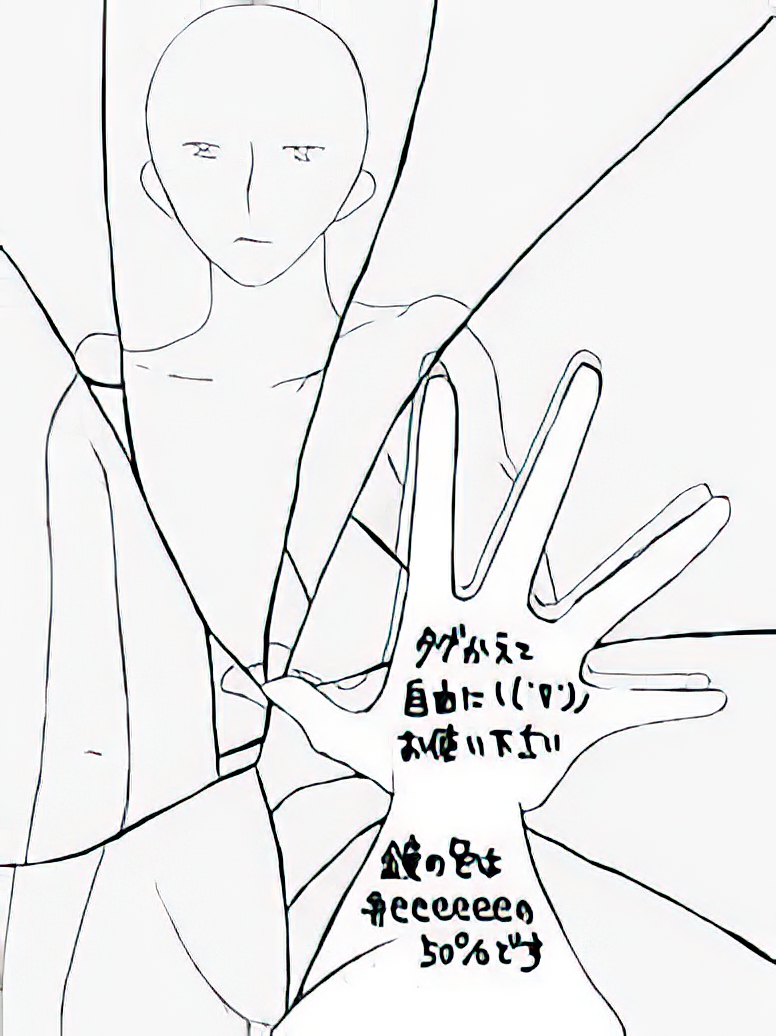 タグかえて
自由に\(('∇'))ノ
お使い下さい
鏡の色は
#eeeeeeの
50%です